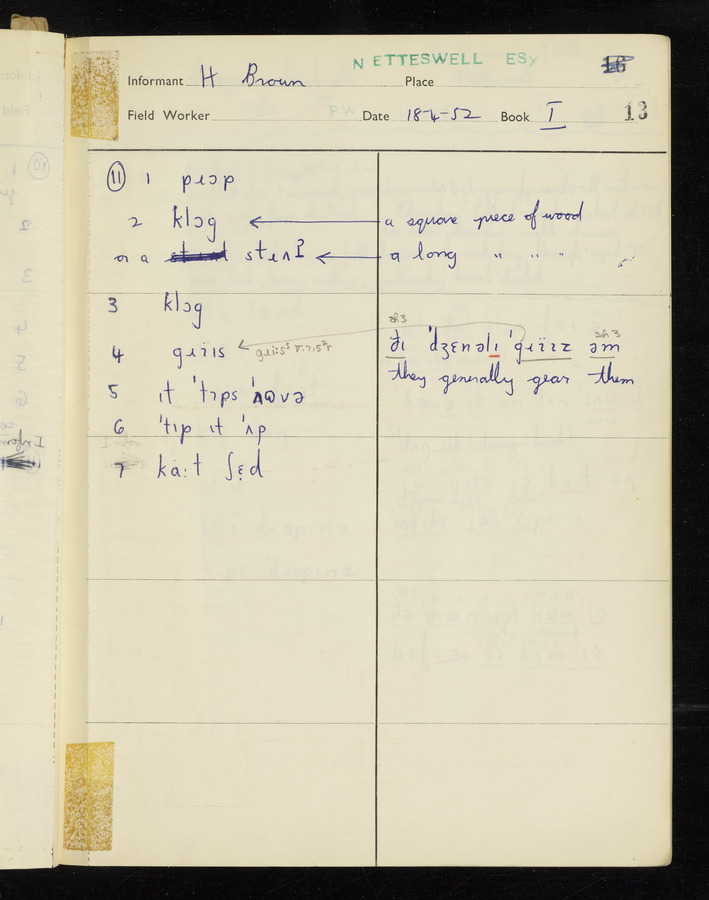 NETTESWELL ESy
Informant H Brown Place
16
Field Worker PW Date 18-4-52 Book I 13
⑪ 1 pɹɔp
2 klɔg ← a square piece of wood
or a stɛʌ ← a long " " "
3 klɔg
4 gɪïɪs
ðɪ ˈdʒɛnəlɪ ˈgɪïɪz əm
they generally gear them
5 ɪt ˈtɪps ˈʌʊvə
6 ˈtɪp ɪt ˈʌp
7 kä:t ʃɛd